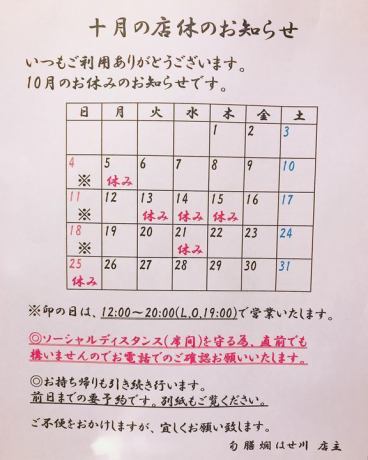 十月の店休のお知らせ
いつもご利用ありがとうございます。
10月のお休みのお知らせです。
日 月 火 水 木 金 土
1 2 3
4 5 6 7 8 9 10
※ 休み
11 12 13 14 15 16 17
※ 休み 休み 休み
18 19 20 21 22 23 24
※ 休み
25 26 27 28 29 30 31
休み
※印の日は、12:00~20:00(L.O.19:00)で営業いたします。
◎ソーシャルディスタンス(席間)を守る為、直前でも
構いませんのでお電話でのご確認お願いいたします。
◎お持ち帰りも引き続き行います。
前日までの要予約です。別紙もご覧ください。
ご不便をおかけしますが、宜しくお願い致します。
旬膳燗 はせ川 店主